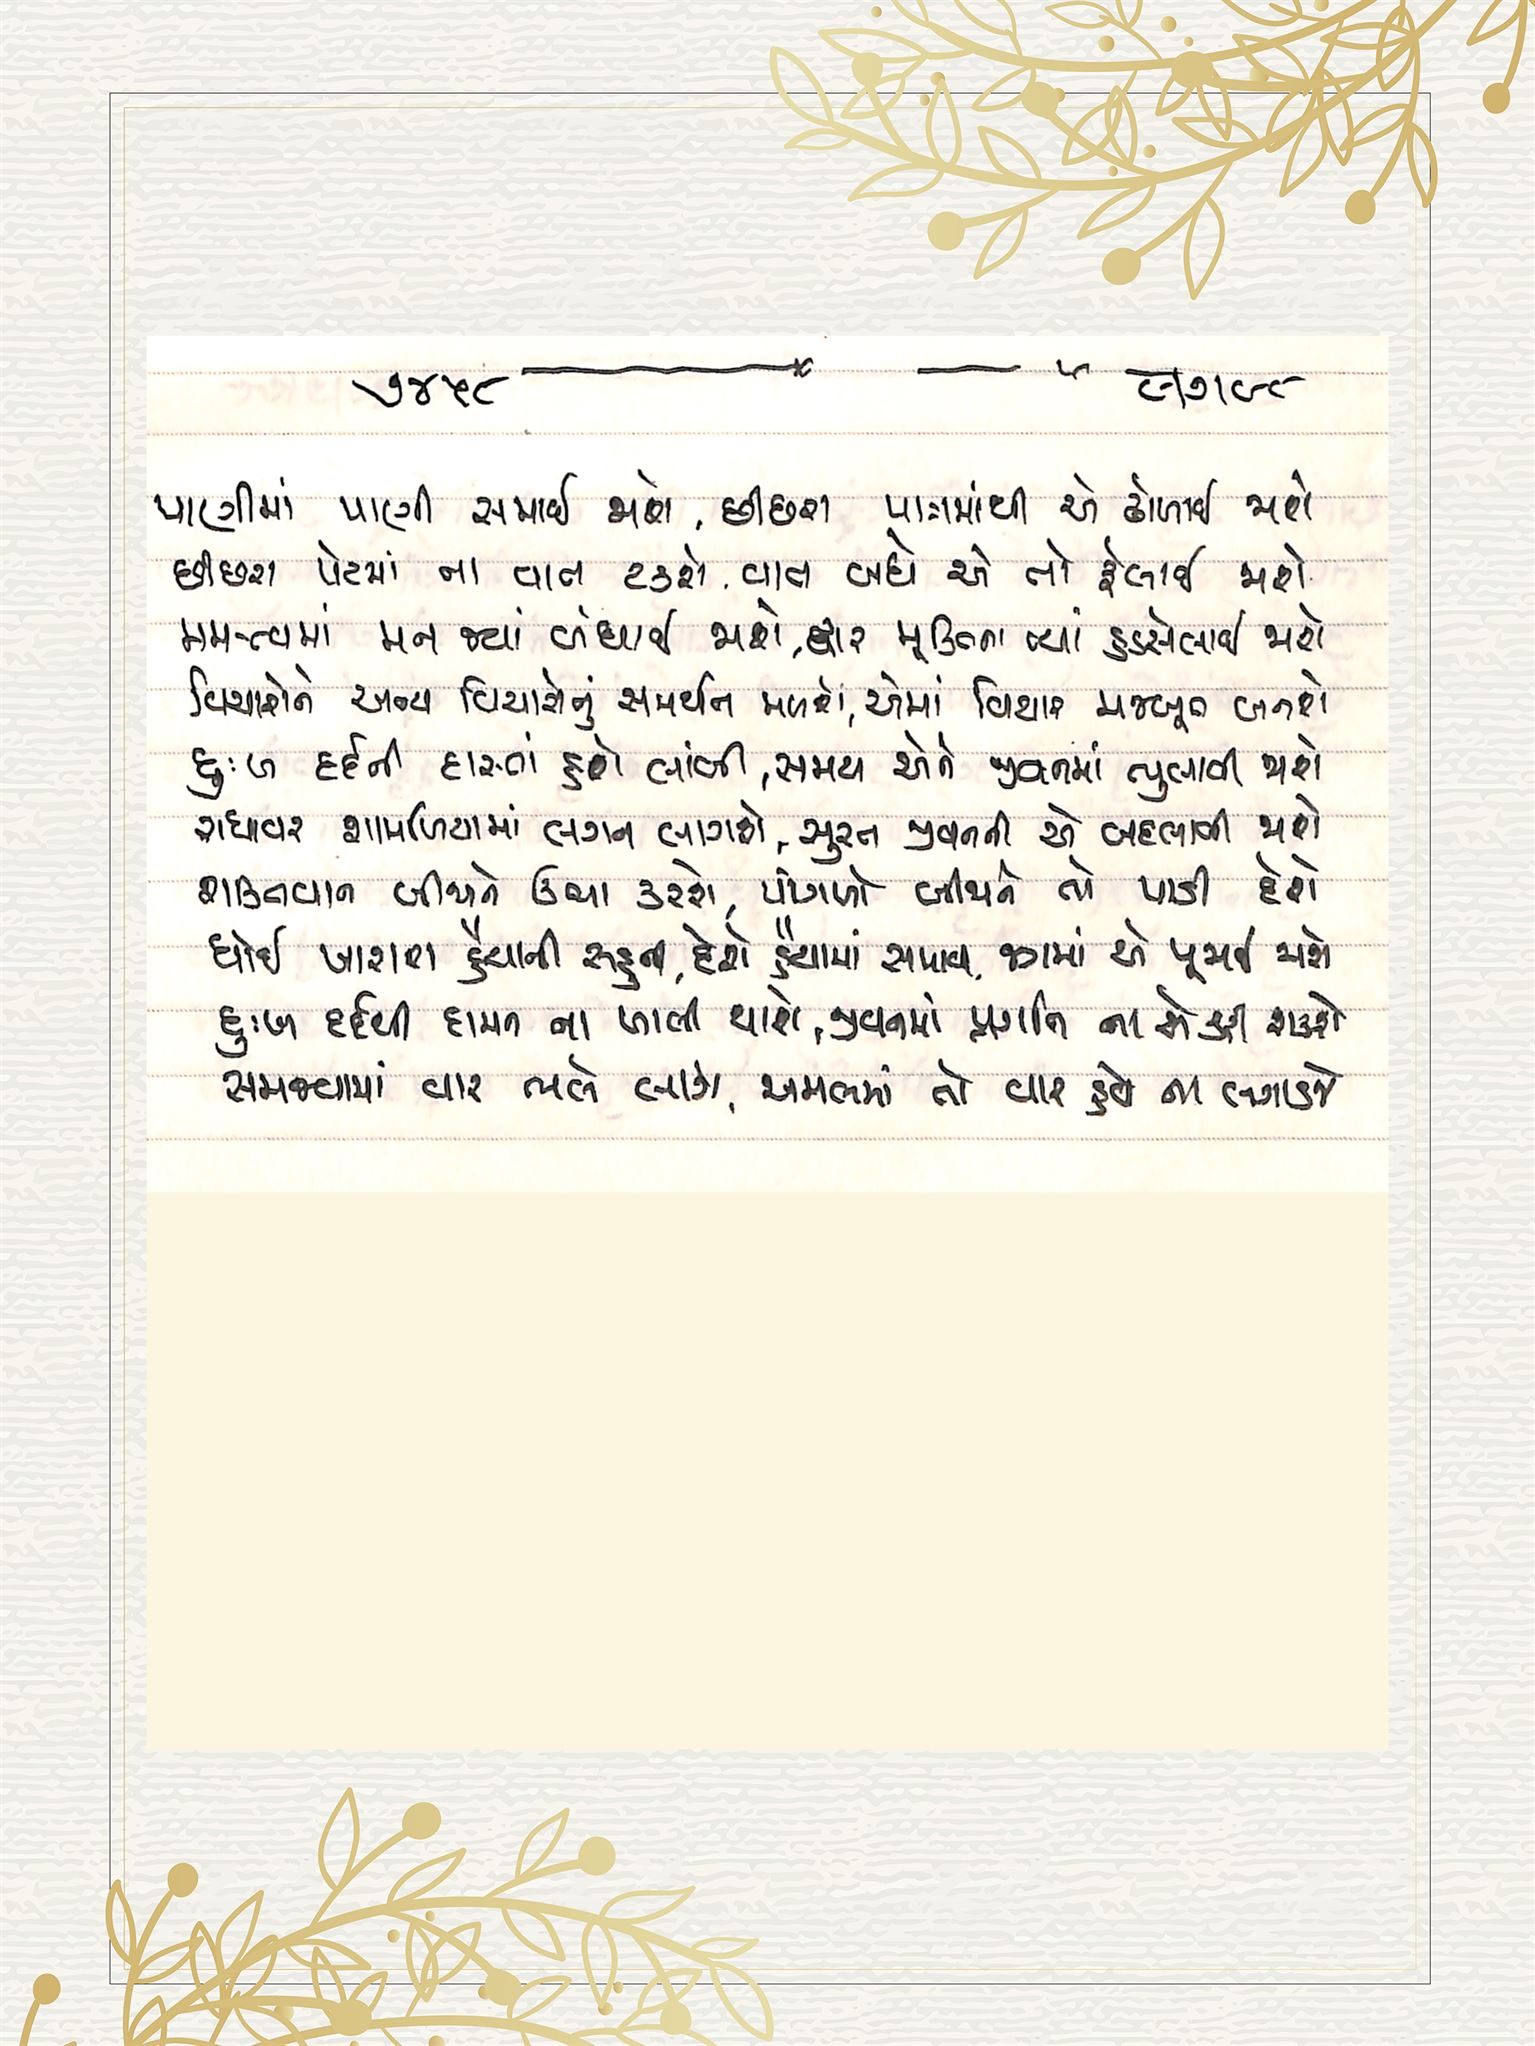 ૭૪૫૮
પાણીમાં પાણી સમાઈ જાશે, છીછરા પાત્રમાંથી એ ઢોળાઈ જાશે
છીછરા પેટમાં ના વાત ટકશે, વાત બધે એ તો ફેલાઈ જાશે
મમત્વમાં મન જ્યાં બંધાઈ જાશે, દ્વાર મૂક્તિના ત્યાં હડસેલાઈ જાશે
વિચારોને અન્ય વિચારોનું સમર્થન મળશે, એમાં વિચાર મજબૂત બનશે
દુઃખ દર્દની દાસ્તાં હશે લાંબી, સમય એને જીવનમાં ભુલાવી જાશે
રાધાવર શામળિયામાં લગન લાગશે, સુરત જીવનની એ બદલાવી જાશે
શક્તિવાન બીજાને ઉંચા કરશે, પાંગળો બીજાને તો પાડી દેશે
ધોઈ હૈયાની, દેશે હૈયામાં, જગમાં એ પૂજાઈ જાશે
દુઃખ દર્દથી દામન ના ખાલી થાશે, જીવનમાં પ્રગતિ ના એ કરી શકશે
સમજવામાં વાર ભલે લાગે, અમલમાં તો વાર હવે ના લગાડજે